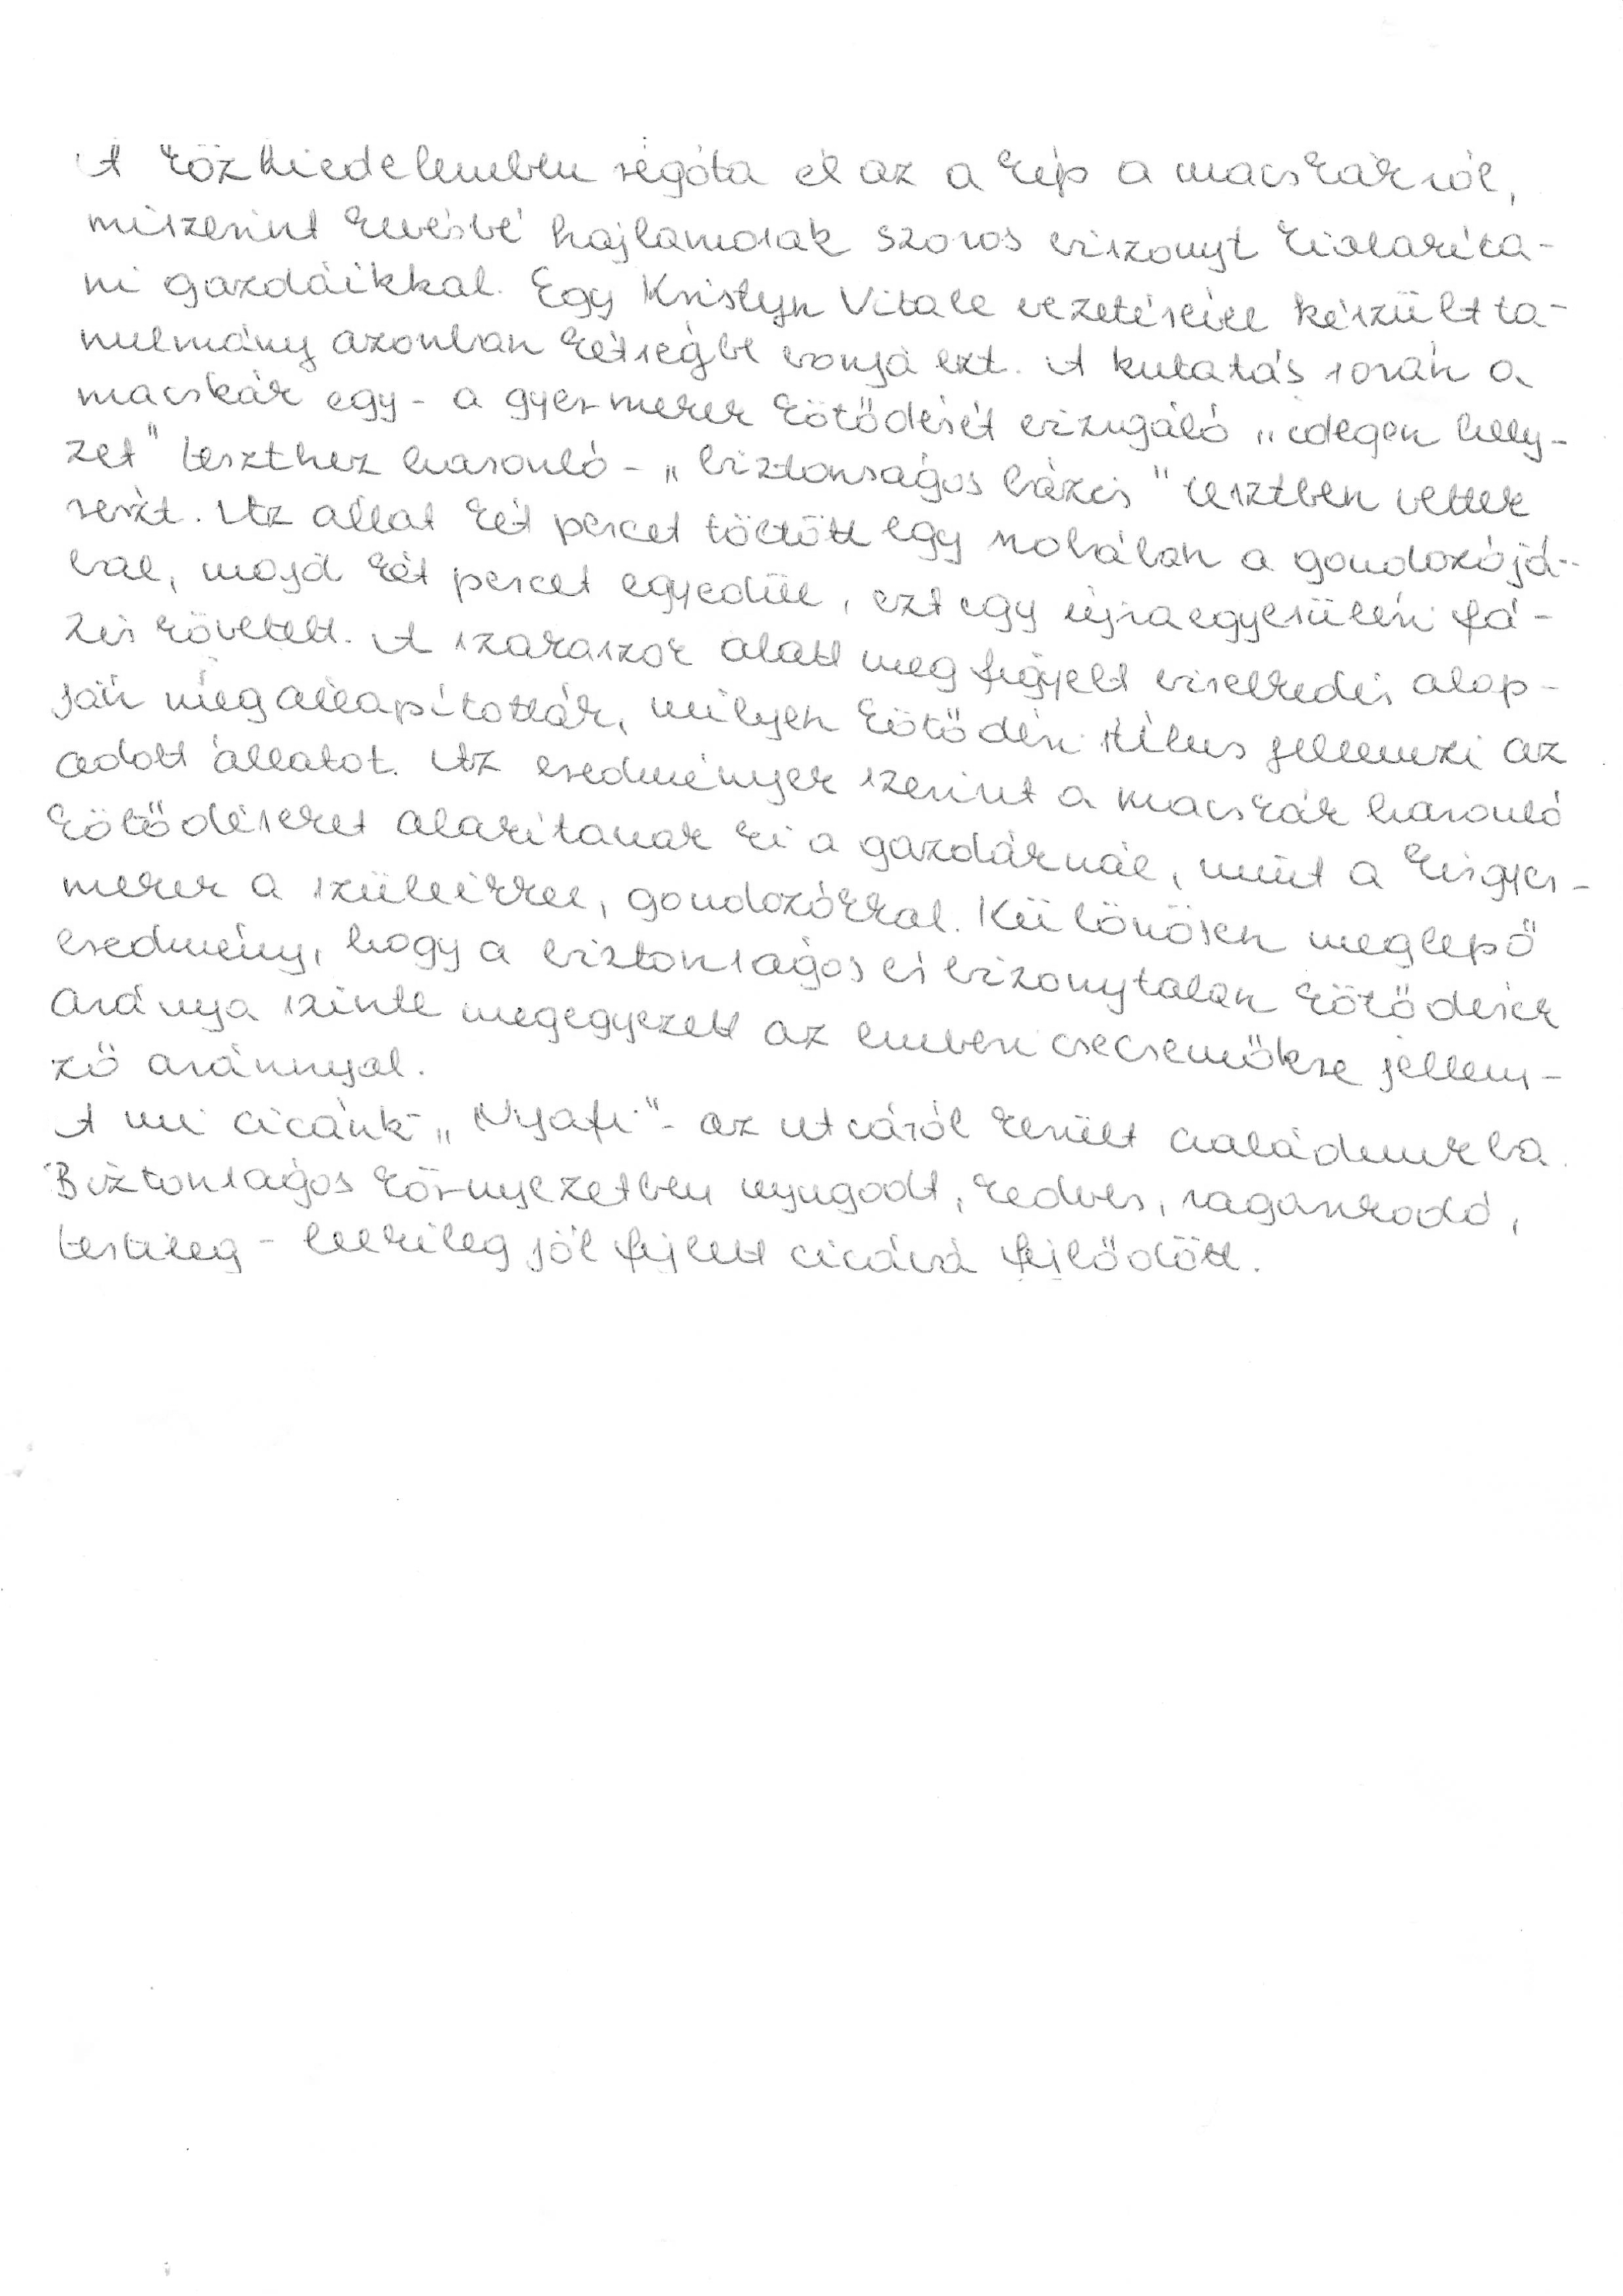 A közhiedelemben régóta él az a kép a macskákról,
miszerint kevésbé hajlamosak szoros viszonyt kialakíta-
ni gazdáikkal. Egy Kristyn Vitale vezetésével készült ta-
nulmány azonban kétségbe vonja ezt. A kutatás során a
macskák egy - a gyermekek kötődését vizsgáló „idegen hely-
zet" teszthez hasonló - „biztonságos bázis" tesztben vettek
részt. Az állat két percet töltött egy szobában a gondozójá-
val, majd két percet egyedül, ezt egy újraegyesülési fá-
zis követett. A szakaszok alatt megfigyelt viselkedés alap-
ján megállapították, milyen kötődési stílus jellemzi az
adott állatot. Az eredmények szerint a macskák hasonló
kötődéseket alakítanak ki a gazdáknál, mint a kisgyer-
mekek a szüleikkel, gondozókkal. Különösen meglepő
eredmény, hogy a biztonságos és bizonytalan kötődések
aránya szinte megegyezett az emberi csecsemőkre jellem-
ző aránnyal.
A mi cicánk - „Nyafi" - az utcáról került családunkba.
Biztonságos környezetben nyugodt, kedves, ragaszkodó,
testileg - lelkileg jól fejlett cicává fejlődött.